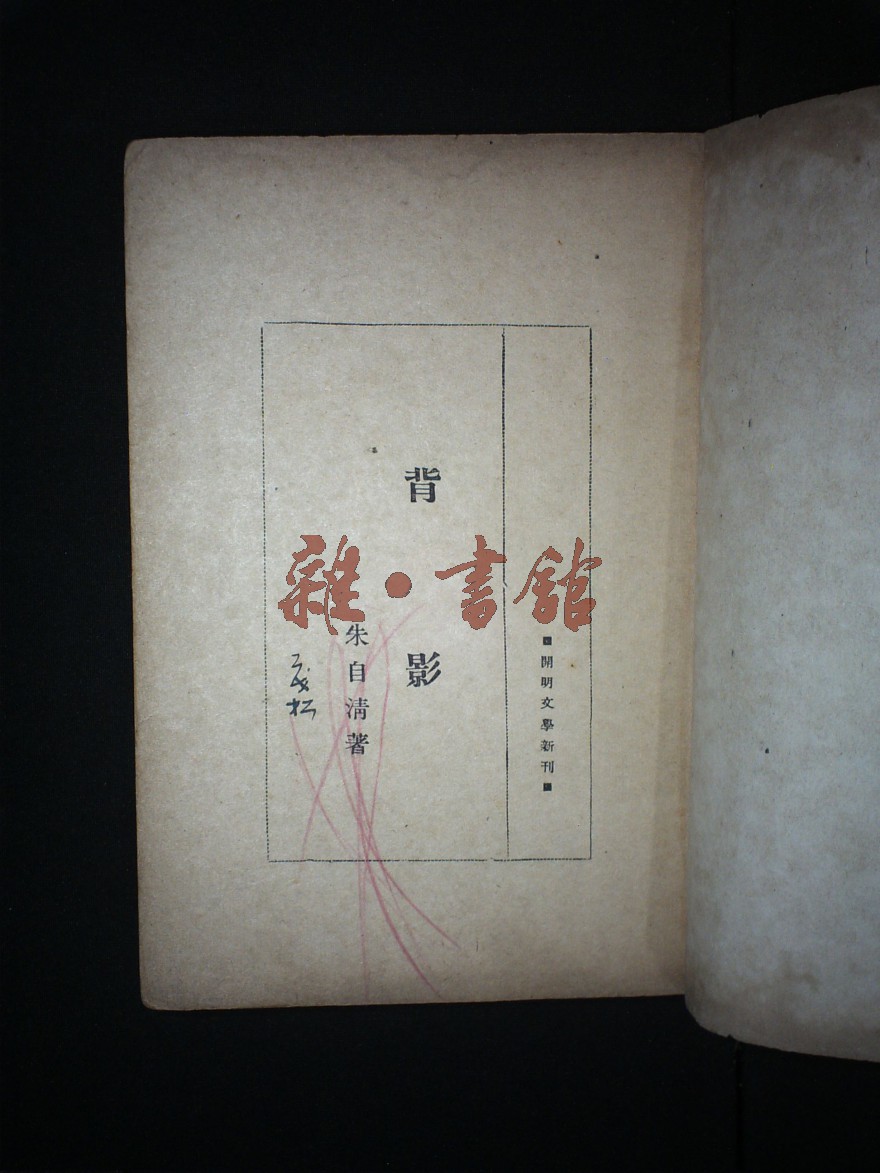 ■開明文學新刊■
背影
朱自清著
雜·書館